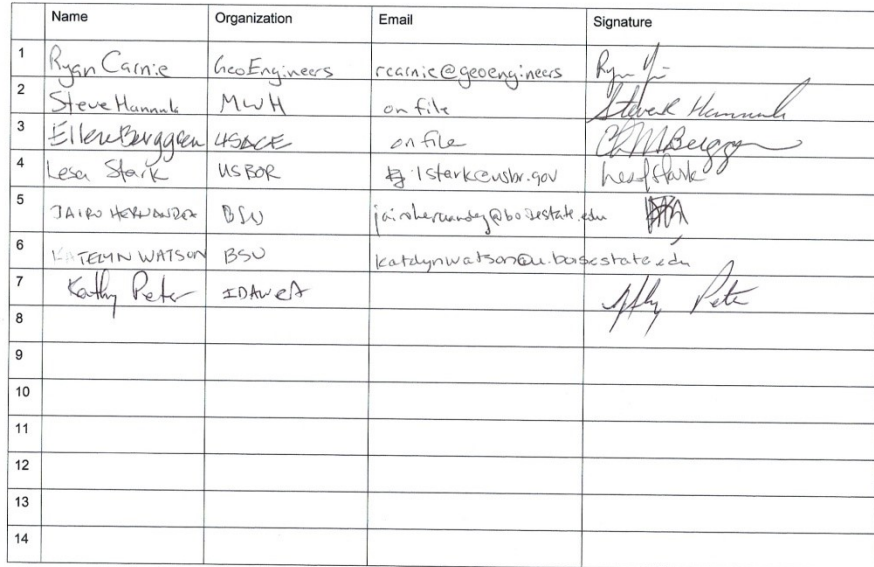 Name Organization Email Signature
1 Ryan Carnie GeoEngineers rcarnie@geoengineers
2 Steve Hannula MWH on file Steven Hannula
3 Ellen Berggren USACE on file Berggren
4 Lesa Stark USBOR lstark@usbr.gov Lesa Stark
5 JAIRO HERNANDEZ BSU jairohernandez@boisestate.edu
6 KATELYN WATSON BSU katelynwatson@u.boisestate.edu
7 Kathy Peter IDAWRA Kathy Peter
8
9
10
11
12
13
14